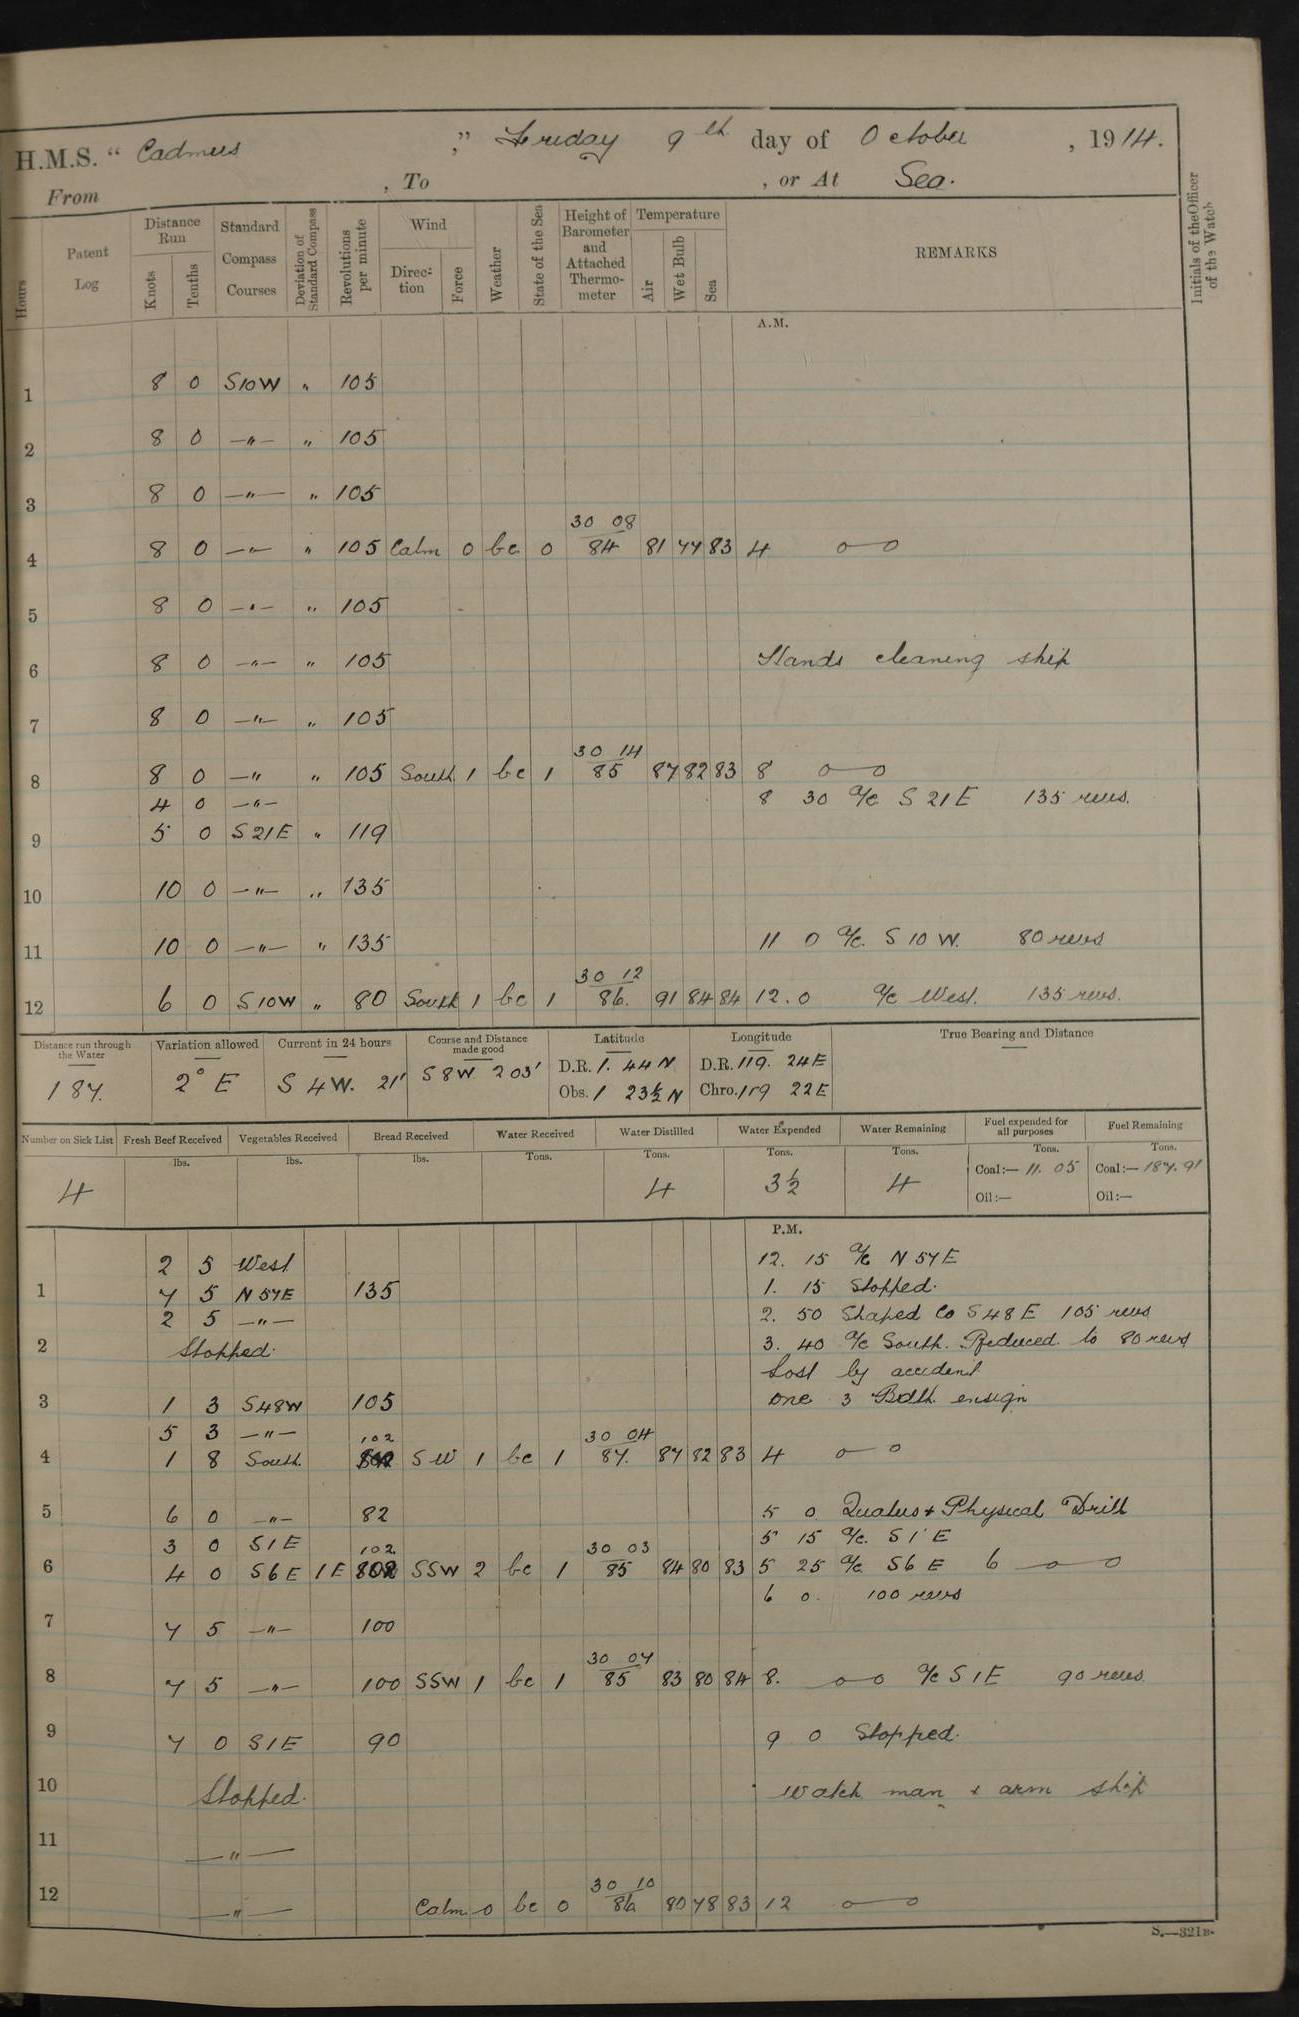 H.M.S. “ Cadmus ,” Friday 9th day of October , 1914.
From , To , or At Sea.
Hours
Patent Log
Distance Run
Knots
Tenths
Standard Compass Courses
Deviation of Standard Compass
Revolutions per minute
Wind
Direc-tion
Force
Weather
State of the Sea
Height of Barometer and Attached Thermo-meter
Temperature
Air
Wet Bulb
Sea
REMARKS
Initials of the Officer of the Watch
A.M.
1 8 0 S10W " 105
2 8 0 —"— " 105
3 8 0 —"— " 105
30 08
4 8 0 —"— " 105 Calm 0 bc 0 84 81 77 83 4 o—o
5 8 0 —"— " 105
6 8 0 —"— " 105 Hands cleaning ship
7 8 0 —"— " 105
30 14
8 8 0 —" " 105 South 1 bc 1 85 87 82 83 8 o—o
4 0 —"— 8 30 a/c S 21 E 135 revs.
9 5 0 S 21 E " 119
10 10 0 —"— " 135
11 10 0 —"— " 135 11 0 a/c. S 10 W. 80 revs
30 12
12 6 0 S 10W " 80 South 1 bc 1 86. 91 84 84 12.0 a/c West. 135 revs.
Distance run through the Water
187.
Variation allowed
2° E
Current in 24 hours
S 4W. 21'
Course and Distance made good
S 8W 203'
Latitude
D.R. 1. 44 N
Obs. 1 23½ N
Longitude
D.R. 119. 24 E
Chro. 119 22 E
True Bearing and Distance
Number on Sick List
4
Fresh Beef Received
lbs.
Vegetables Received
lbs.
Bread Received
lbs.
Water Received
Tons.
Water Distilled
Tons.
4
Water Expended
Tons.
3½
Water Remaining
Tons.
4
Fuel expended for all purposes
Tons.
Coal:— 11. 05
Oil:—
Fuel Remaining
Tons.
Coal:— 187. 91
Oil:—
P.M.
2 5 West 12. 15 a/c N 57 E
1 7 5 N 57E 135 1. 15 Stopped.
2 5 —"— 2. 50 Shaped Co S 48 E 105 revs
2 Stopped. 3. 40 a/c South. Reduced to 80 revs
Lost by accident
3 1 3 S48W 105 one 3 Bdth. ensign
5 3 —"— 102 30 04
4 1 8 South. SW 1 bc 1 87. 87 82 83 4 o—o
5 6 0 —"— 82 5 0 Quarters + Physical Drill
3 0 S1E 102 30 03 5 15 a/c. S 1 E
6 4 0 S6E 1E SSW 2 bc 1 85 84 80 83 5 25 a/c S6 E 6 o—o
6 0. 100 revs
7 7 5 —"— 100
30 07
8 7 5 —"— 100 SSW 1 bc 1 85 83 80 84 8. o—o a/c S 1 E 90 revs
9 7 0 S1E 90 9 0 Stopped.
10 Stopped. Watch man & arm ship
11 —"—
30 10
12 —"— Calm 0 bc 0 86 80 78 83 12 o—o
S.—321B.